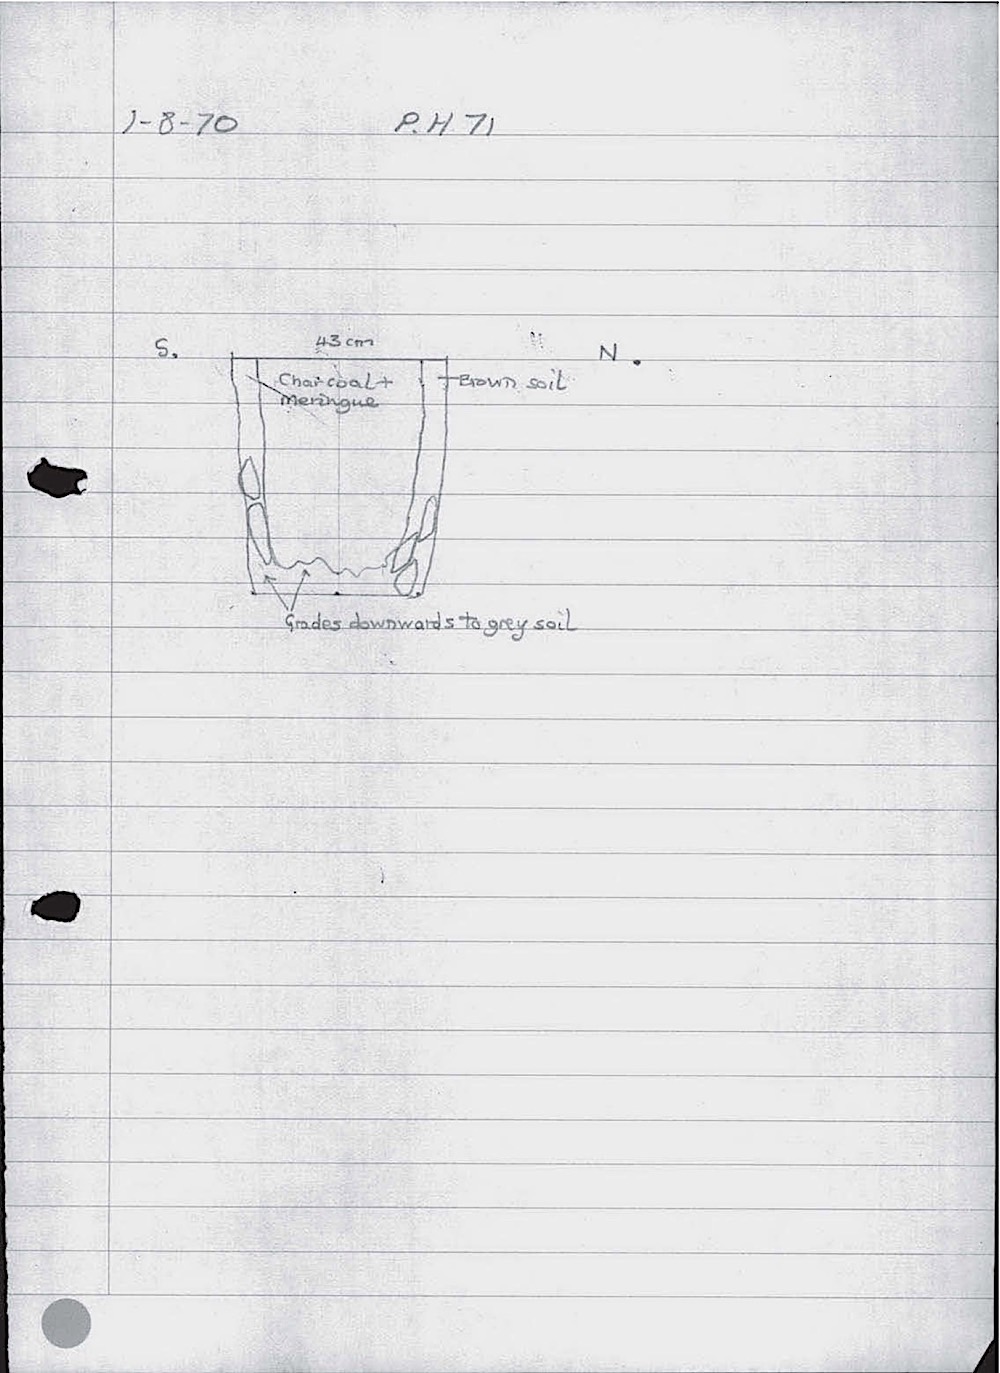 1-8-70 P.H 71
43 cm
S. N.
Charcoal + Brown soil
Meringue
Grades downwards to grey soil